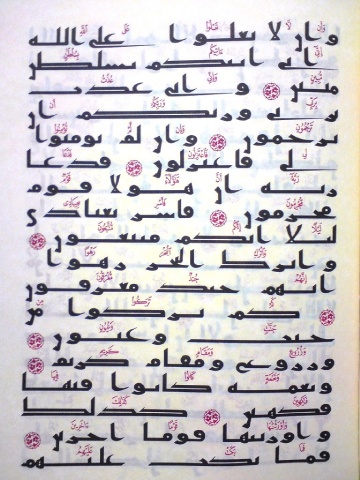 وان لا تعلوا على الله
اني اتيكم بسلطن
مبين و اني عذت
بربي وربكم ان
ترجمون وان لم تومنوا
لي فاعتزلون فدعا
ربه ان هولا قوم
مجرمون فاسر بعبادي
ليلا انكم متبعون
واترك البحر رهوا
انهم جند مغرقون
كم تركوا من
جنت وعيون
وزروع ومقام كريم
ونعمه كانوا فيها
فكهين كذلك
واورثنها قوما اخرين
فما بكت عليهم